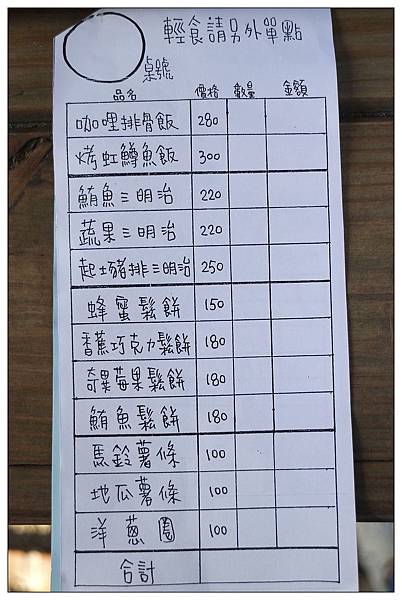 輕食請另外單點
桌號
品名 價格 數量 金額
咖哩排骨飯 280
烤虹鱒魚飯 300
鮪魚三明治 220
蔬果三明治 220
起士豬排三明治 250
蜂蜜鬆餅 150
香蕉巧克力鬆餅 180
奇異莓果鬆餅 180
鮪魚鬆餅 180
馬鈴薯條 100
地瓜薯條 100
洋蔥圈 100
合計